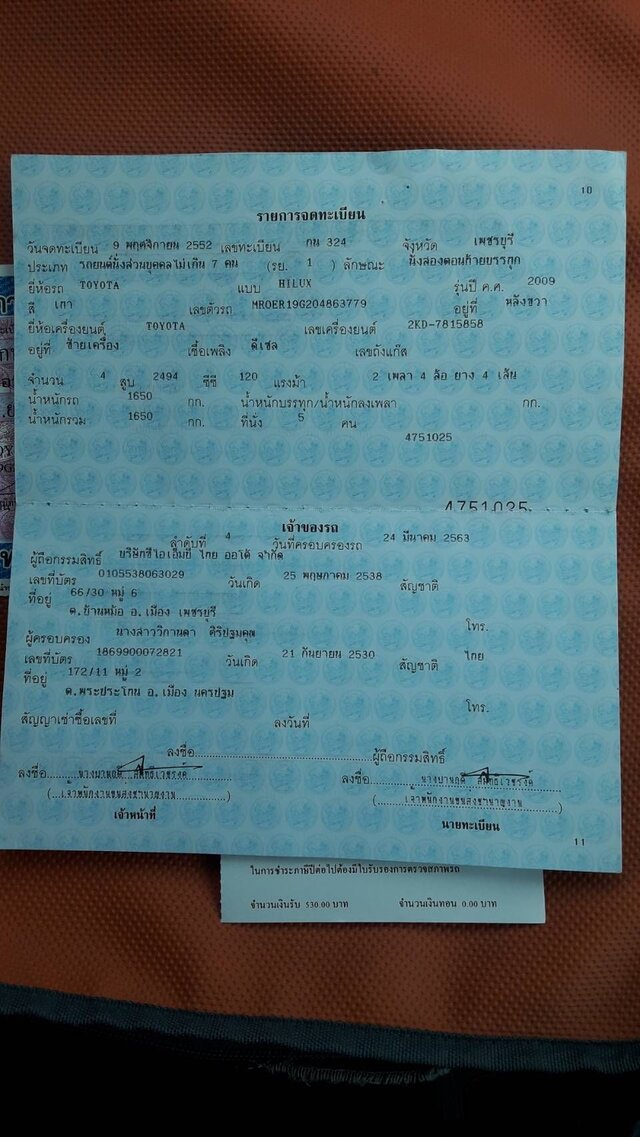 10
รายการจดทะเบียน
วันจดทะเบียน 9 พฤศจิกายน 2552 เลขทะเบียน กน 324 จังหวัด เพชรบุรี
ประเภท รถยนต์นั่งส่วนบุคคลไม่เกิน 7 คน (รย. 1 ) ลักษณะ นั่งสองตอนท้ายบรรทุก
ยี่ห้อรถ TOYOTA แบบ HILUX รุ่นปี ค.ศ. 2009
สี เทา เลขตัวรถ MROER19G204863779 อยู่ที่ หลังขวา
ยี่ห้อเครื่องยนต์ TOYOTA เลขเครื่องยนต์ 2KD-7815858
อยู่ที่ ซ้ายเครื่อง เชื้อเพลิง ดีเซล เลขถังแก๊ส
จำนวน 4 สูบ 2494 ซีซี 120 แรงม้า 2 เพลา 4 ล้อ ยาง 4 เส้น
น้ำหนักรถ 1650 กก. น้ำหนักบรรทุก/น้ำหนักลงเพลา กก.
น้ำหนักรวม 1650 กก. ที่นั่ง 5 คน
4751025
4751025
เจ้าของรถ
ลำดับที่ 4 วันที่ครอบครองรถ 24 มีนาคม 2563
ผู้ถือกรรมสิทธิ์ บริษัทซีไอเอ็มบี ไทย ออโต้ จำกัด
เลขที่บัตร 0105538063029 วันเกิด 25 พฤษภาคม 2538 สัญชาติ
ที่อยู่ 66/30 หมู่ 6
ต.บ้านหม้อ อ.เมือง เพชรบุรี
โทร.
ผู้ครอบครอง นางสาววิกานดา ศิริปฐมคุณ
เลขที่บัตร 1869900072821 วันเกิด 21 กันยายน 2530 สัญชาติ ไทย
ที่อยู่ 172/11 หมู่ 2
ต.พระประโทน อ.เมือง นครปฐม
โทร.
สัญญาเช่าซื้อเลขที่ ลงวันที่
ลงชื่อ ผู้ถือกรรมสิทธิ์
ลงชื่อ ลงชื่อ
(เจ้าพนักงานขนส่งชำนาญงาน) (เจ้าพนักงานขนส่งชำนาญงาน)
เจ้าหน้าที่ นายทะเบียน
11
ในการชำระภาษีปีต่อไปต้องมีใบรับรองการตรวจสภาพรถ
จำนวนเงินรับ 530.00 บาท จำนวนเงินทอน 0.00 บาท